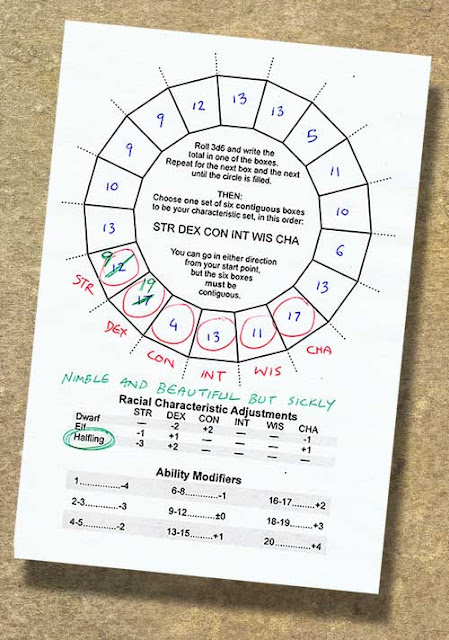 13
12
13
9
5
9
11
10
10
13
6
9 12
13
19 17
4
13
11
17
Roll 3d6 and write the
total in one of the boxes.
Repeat for the next box and the next
until the circle is filled.
THEN:
Choose one set of six contiguous boxes
to be your characteristic set, in this order:
STR DEX CON INT WIS CHA
You can go in either direction
from your start point,
but the six boxes
must be
contiguous.
STR
DEX
CON
INT
WIS
CHA
NIMBLE AND BEAUTIFUL BUT SICKLY
Racial Characteristic Adjustments
STR DEX CON INT WIS CHA
Dwarf — -2 +2 — — -1
Elf -1 +1 — — — +1
Halfling -3 +2 — — — —
Ability Modifiers
1...............-4 6-8...............-1 16-17.........+2
2-3.............-3 9-12.............±0 18-19.........+3
4-5.............-2 13-15...........+1 20...............+4